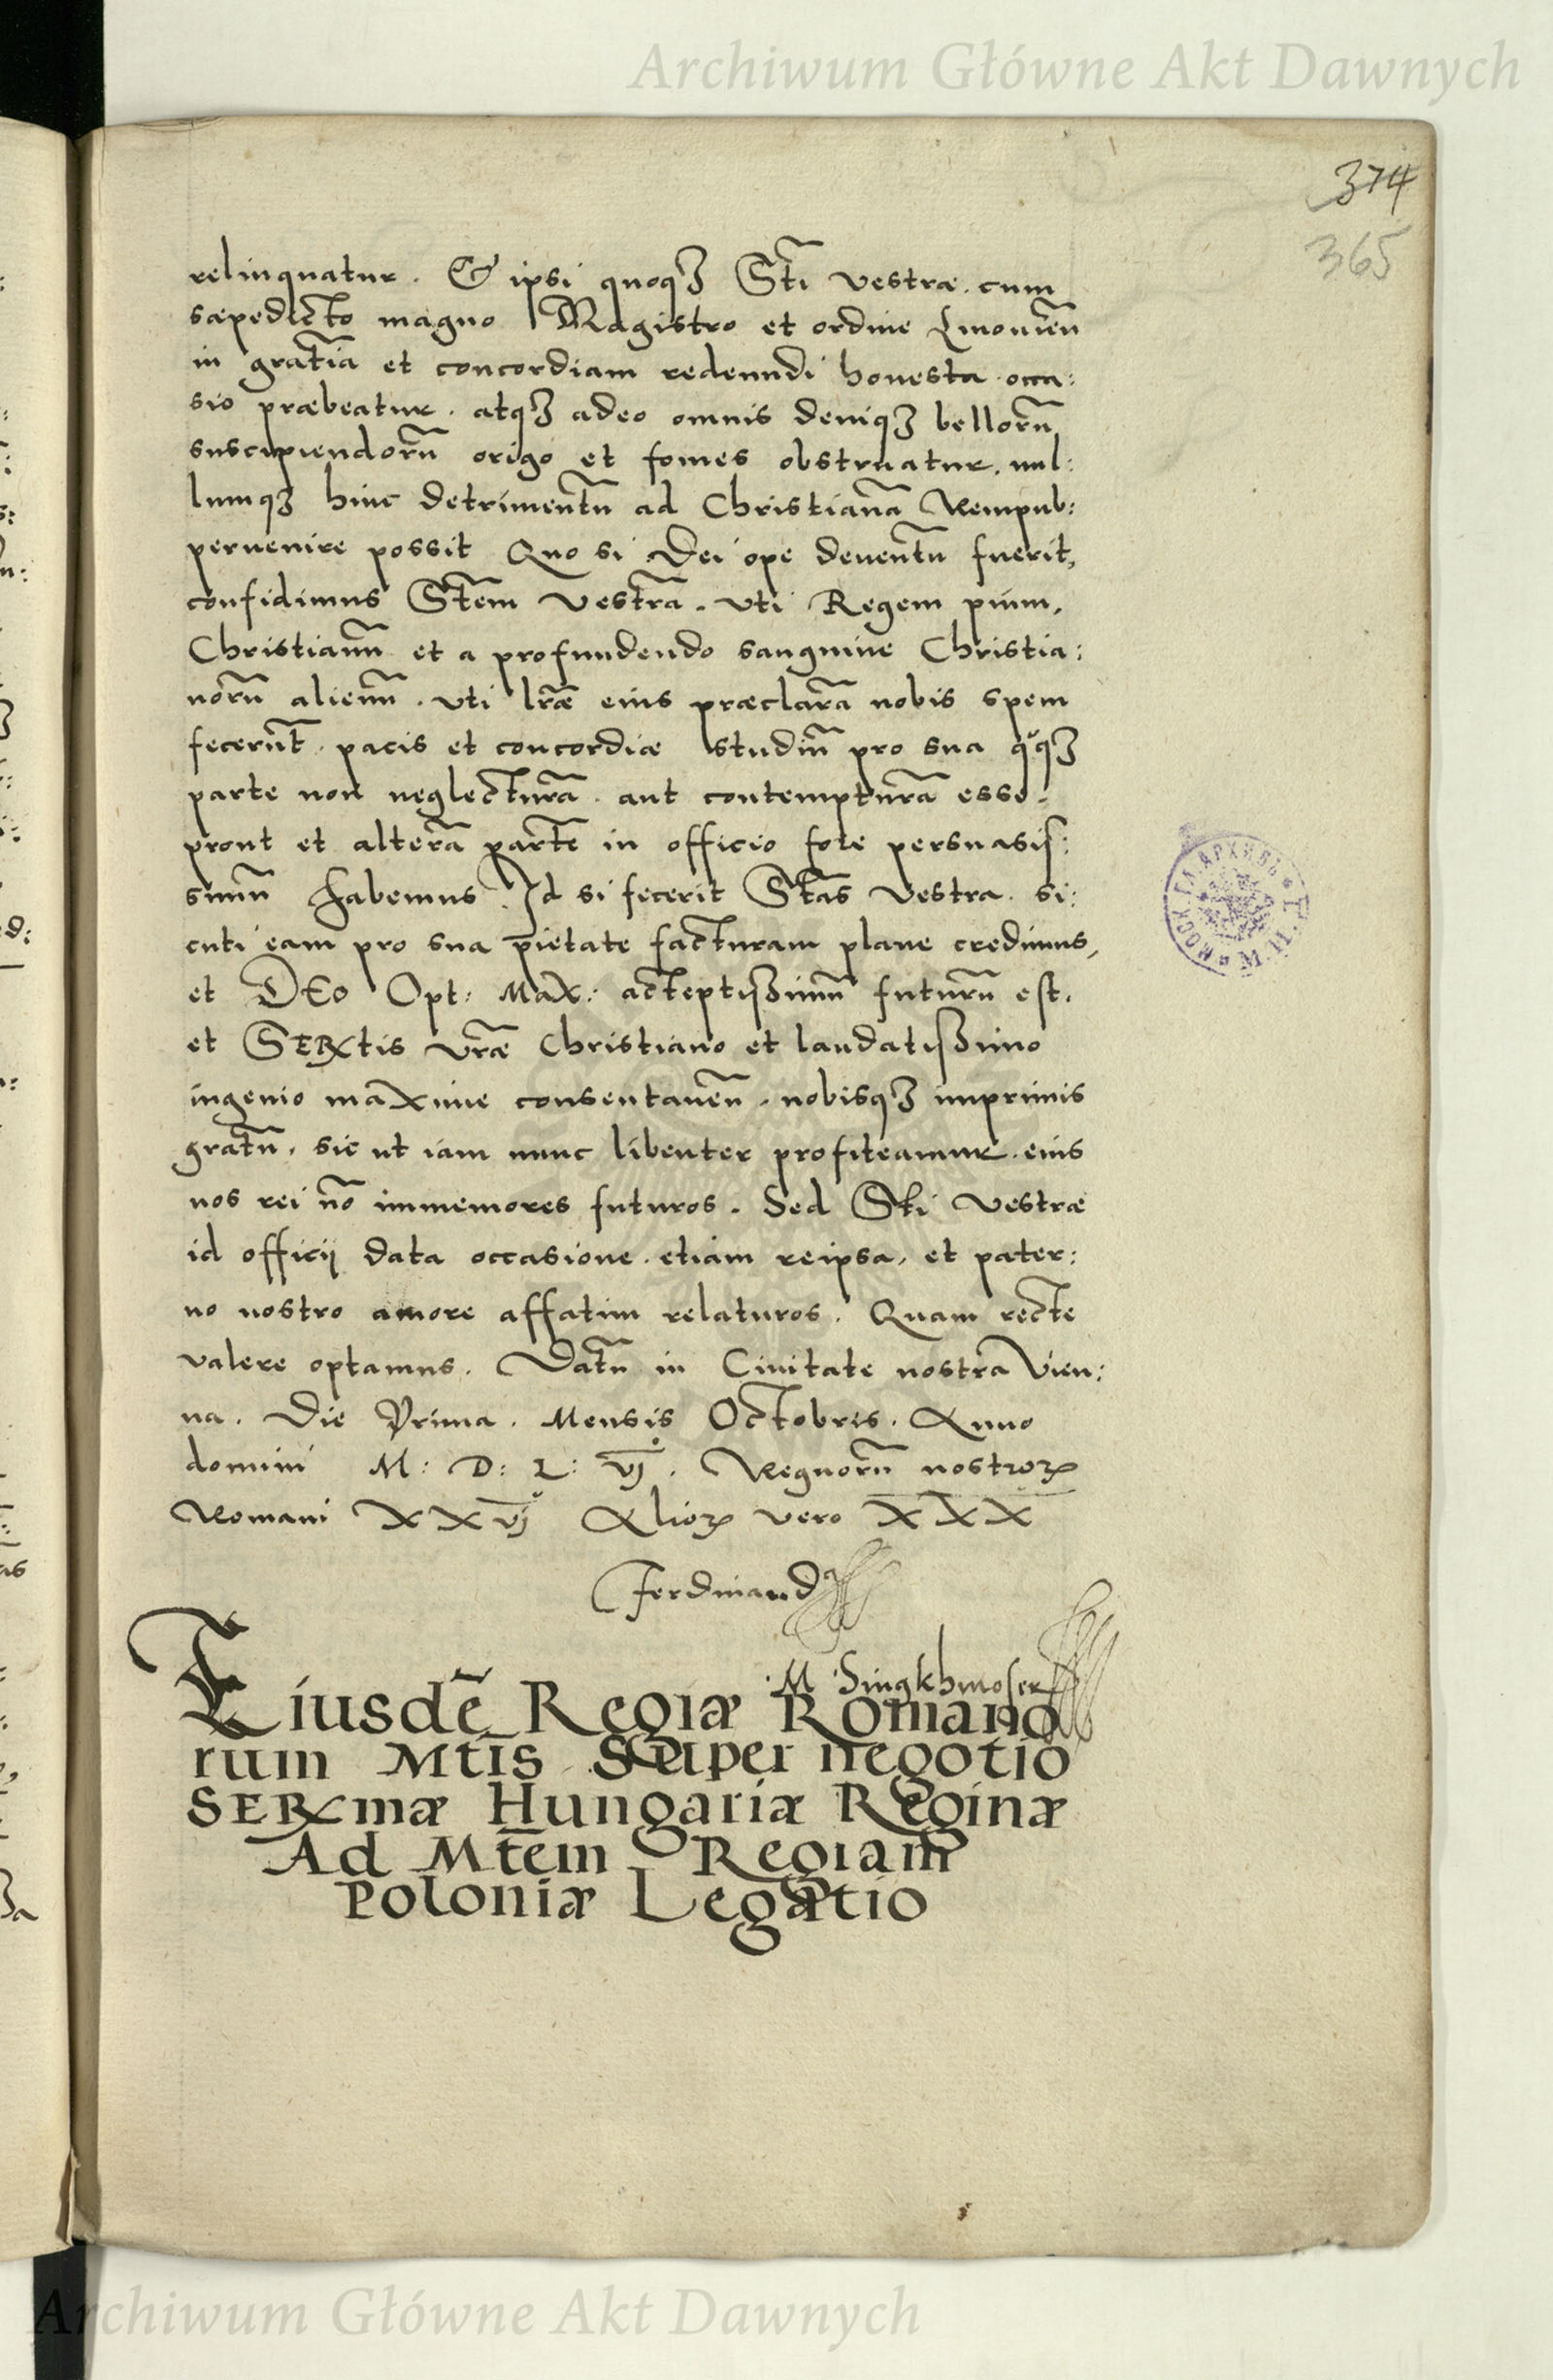 Archiwum Główne Akt Dawnych
374
365
relinquatur. Et ipsi quoqȝ Stĩ Vestræ. cum
sæpedicto magno Magistro et ordine Liuonieñ
in gratiã et concordiam redeundi honesta occa:
sio præbeatur. atqȝ adeo omnis deniqȝ bellorũ
suscipiendorũ origo et fomes obstruatur, nul:
lumqȝ hinc detrimentũ ad Christianã Rempub:
peruenire possit Quo si Dei ope deuentũ fuerit,
confidimus Stẽm Vestrã. Vti Regem pium,
Christianũ et a profundendo sanguine Christia:
norũ alienũ. Vti lræ̃ eius præclarã nobis spem
fecerũt. pacis et concordiæ studiũ pro sua qͦqȝ
parte non neglecturã. aut contempturã esse.
prout et alterã partẽ in officio fore persuasis:
simũ habemus. Id si fecerit Stãs Vestra. si:
cuti eam pro sua pietate facturam plane credimus,
et DEo Opt: Max: acceptissimũ futurũ est.
et SERtis vræ̃ Christiano et laudatissimo
ingenio maxime consentaneũ. nobisqȝ imprimis
gratũ. sic ut iam nunc libenter profiteamur. eius
nos rei nõ immemores futuros. Sed Stĩ Vestræ
id officij data occasione. etiam reipsa, et pater:
no nostro amore affatim relaturos. Quam recte
valere optamus. Datũ in Ciuitate nostra Vien:
na. Die Prima. Mensis Octobris. Anno
domini M: D: L: vjͦ. Regnorũ nostroꝝ
Romani XXvjͦ Alioꝝ vero XXX
Ferdinand
M Singkhmoser
Eiusdẽ Regiæ Romano
rum Mtĩs Super negotio
SERmæ Hungariæ Reginæ
Ad Mtẽm Regiam
Poloniæ Legatio
Archiwum Główne Akt Dawnych